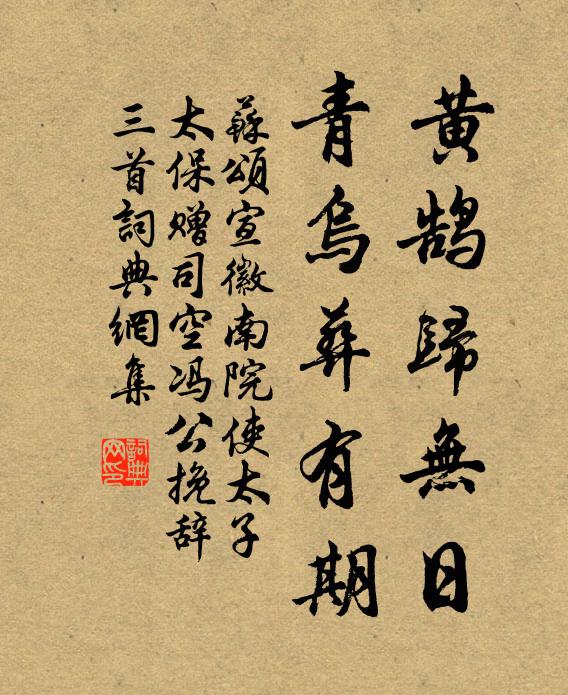 黃鵠歸無日
青烏葬有期
蘇頌宣徽南院使太子
太保赠司空冯公挽辞
三首詞典網集
詞典网印